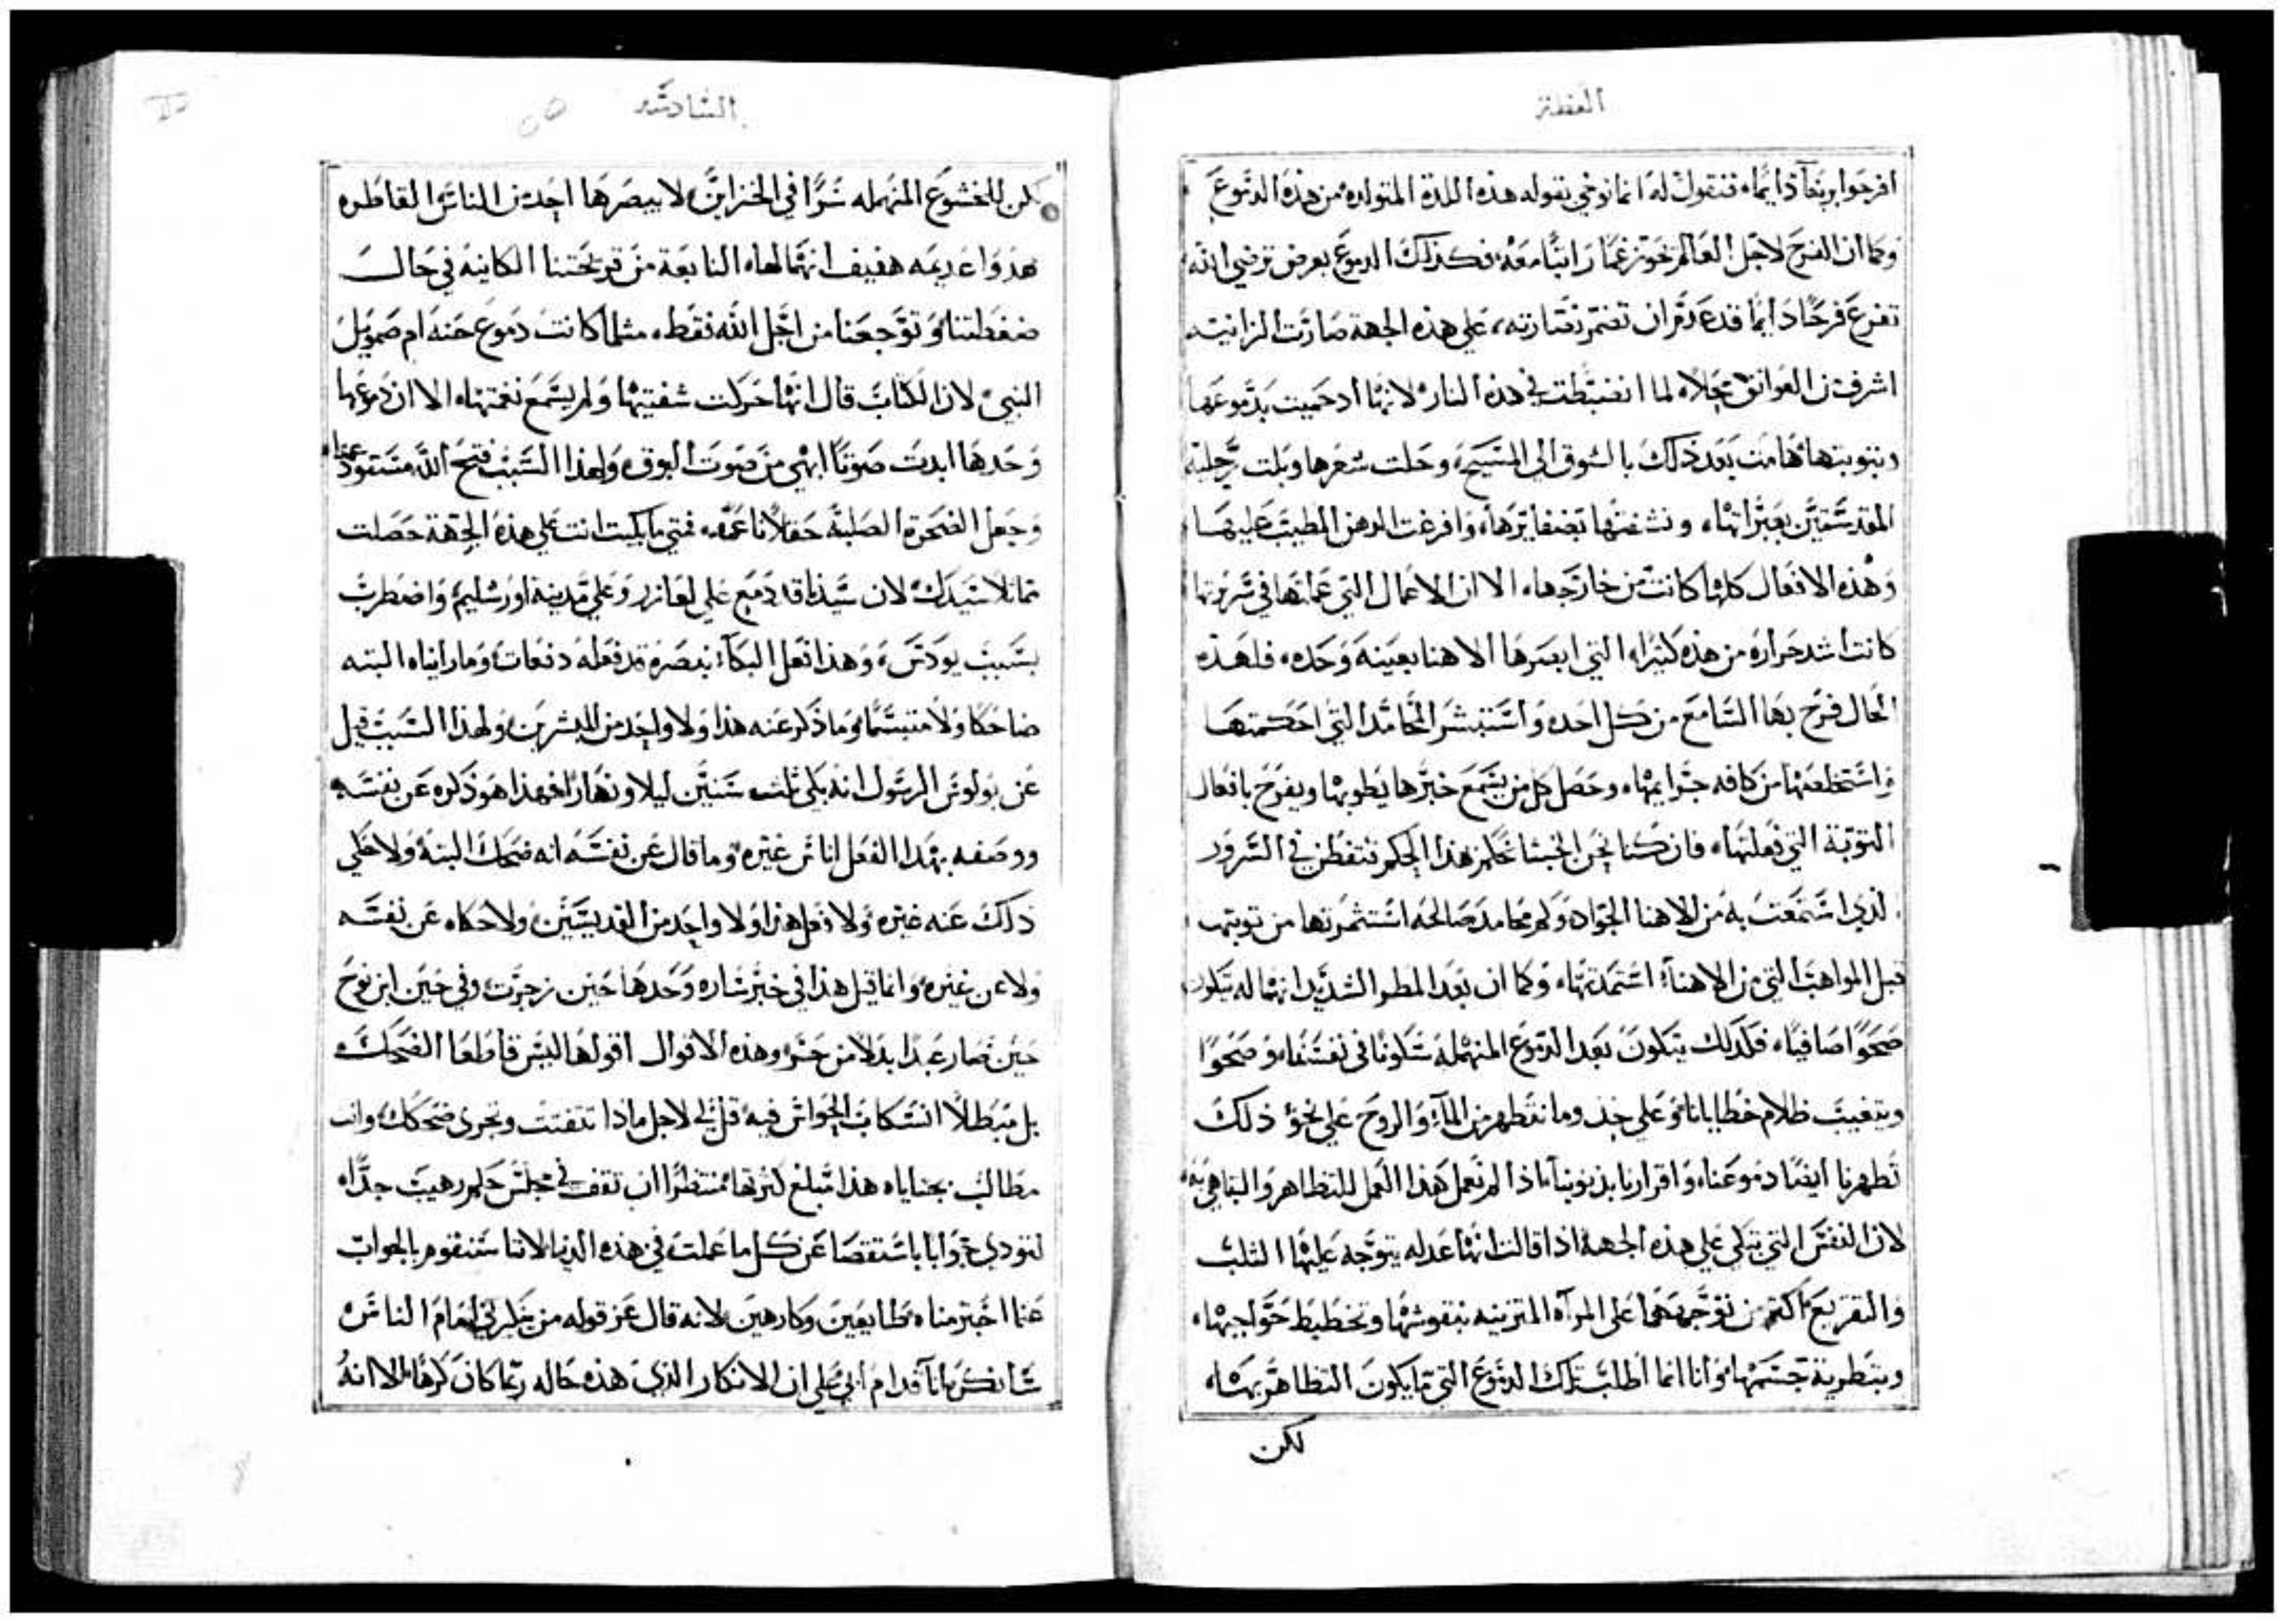 العظة
افرحوا بربنا دايمًا، فنقول له انما نوخي بقوله هذه اللذة المتولده من هذه الدموع
وكما ان الفرح لاجل العالم نحو غمًا راتبًا معه، فكذلك الدموع بعرض ترضي الله
تفرع فرحًا دايمًا قد عدم ان تضمر نضارته، علي هذه الجهة صارت الزانيه
اشرف من العواتق بجلاء لما انضبطت في هذه النار، لانها اد حميت بدموعها
وبتوبتها هامت بعد ذلك بالشوق الي المسيح، وحلت شعرها وبلت رجليه
المقدستين بعبراتها، ونشفتها بضفايرها، وافرغت الدهن المطيب عليها
وهذه الافعال كلها كانت من خارجها، الا ان الاعمال التي عملتها في سريرتها
كانت اشد حراره من هذه كثيرًا، التي ابصرها الاهنا بعينه وحده، فلهذه
الحال فرح بها السامع من كل احد، واستبشر المحامد التي احكمتها
واستخلعتها من كافه جرايمها، وحصل كل من يسمع خبرها يطوبها ويفرح بافعال
التوبة التي فعلتها، فان كنا نحن الخبثا نحكم هذا الحكم فتفطن في السرور
الذي استمتعت به من الاهنا الجواد، وكم محامد صالحه استثمرتها من توبتها
قبل المواهب التي من الاهنا، استمدتها، وكما ان بعد المطر الشديد انهماله يتكون
صحوًا صافيًا، فكذلك يتكون بعد الدموع المنهمله سكونًا في نفسنا، وصحوًا
ويتغيب ظلام خطايانا، وعلي حذو ما نتطهر من الماء والروح علي نحو ذلك
تطهرنا ايضًا دموعنا، واقرارنا بذنوبنا، اذا لم نعمل هذا العمل للتظاهر والتباهي به
لان النفس التي تبكي علي هذه الجهة اذا قالت انها عدله يتوجه عليها الثلب
والتقريع اكثر من توجههما علي المرآه المتزينه بنقوشها وتخطيط حواجبها،
وبتطرية جسمها، وانا انما اطلب تلك الدموع التي ما يكون التظاهر بها،
لكن
السادسه
لكن للخشوع المنهمله سرًا في الخزاين، لا يبصرها احد من الناس القاطره
هدوا عديمه هفيف انهمالها، النابعة من قريحتنا الكاينه في حال
ضغطتنا، وتوجعنا من اجل الله فقط، مثلما كانت دموع حنه ام صمويل
النبي، لان الكتاب قال انها حركت شفتيها ولم يسمع نغمتها، الا ان دموعها
وحدها ابدت صوتًا ابهي من صوت البوق، ولهذا السبب فتح الله مستودعها
وجعل الصخرة الصلبة حقلاً ناعمًا، فمتي ما بكيت انت علي هذه الجهة حصلت
مماثلاً سيدك، لان سيدنا قد دمع علي لعازر وعلي مدينة اورشليم، واضطرب
بسبب يودس، وهذا فعل البكاء نبصره قد فعله دفعات، وما راياه البته
ضاحكًا ولا متبسمًا، وما ذكر عنه هذا ولا واحد من المبشرين، ولهذا السبب قيل
عن بولوس الرسول انه بكي ثلث سنين ليلا ونهارًا، فهذا هو ذكره عن نفسه
ووصفه بهذا الفعل اناس غيره، وما قال عن نفسه انه ضحك البته، ولا حكي
ذلك عنه غيره، ولا فعل هذا ولا واحد من القديسين، ولا حكاه عن نفسه
ولا عن غيره، وانما قيل هذا في خبر ساره وحدها حين زجرت، وفي حين ابن نوح
حين صار عبدًا بدلاً من حر، وهذه الاقوال اقولها ليس قاطعا الضحك
بل مبطلاً انسكاب الحواس فيه، قل لي لاجل ماذا تتفتت وتجري ضحكك، وانت
مطالب بجنايات هذا مبلغ كثرتها، منتظرًا ان تقف في مجلس حكم رهيب جدًا،
لتودي جوابًا باستقصا عن كل ما عملت في هذه الدنيا، لاننا سنقوم بالجواب
عما اجترمناه طايعين وكارهين، لانه قال عز قوله من ينكرني قدام الناس
سانكره انا قدام ابي، علي ان الانكار الذي هذه حاله ربما كان كرهًا، الا انه